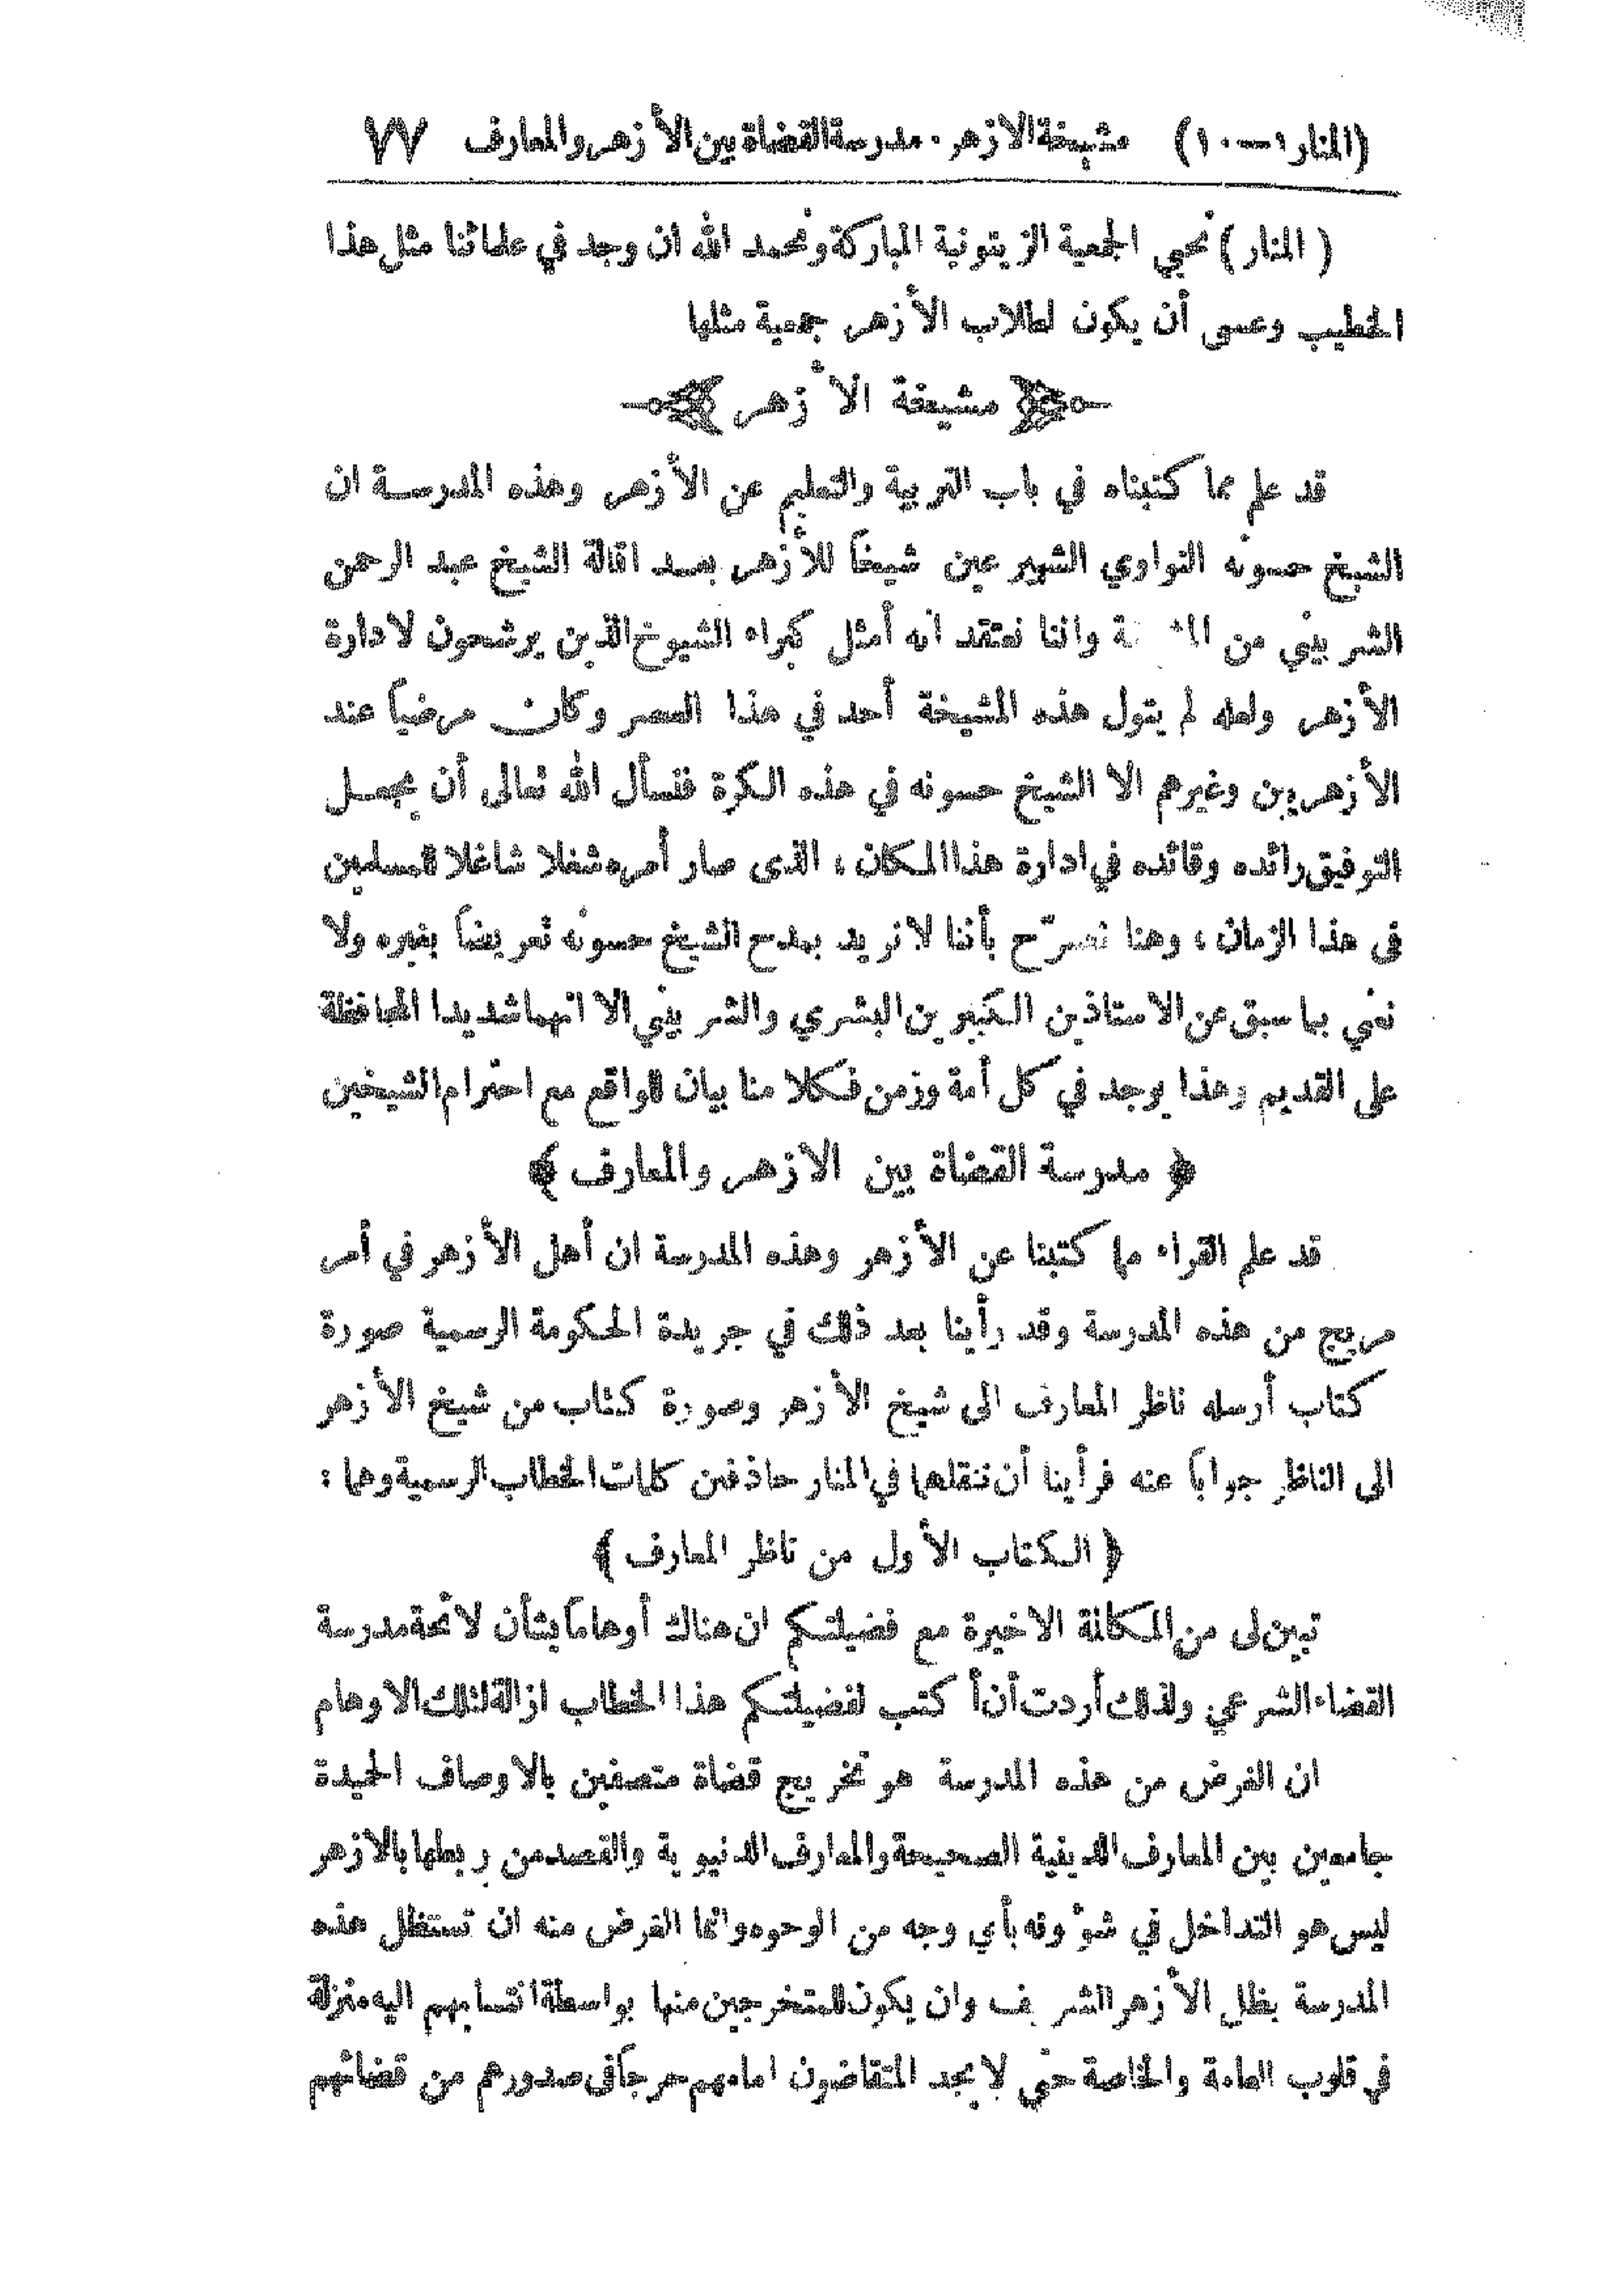 (المنار ١ــ١٠) مشيخة الازهر . مدرسة القضاة بين الأزهر والمعارف ٧٧
( المنار ) نحيي الجمعية الزيتونية المباركة ونحمد الله ان وجد في علمائنا مثل هذا
الخطيب وعسى أن يكون لطلاب الأزهر جمعية مثلها
﴿ مشيخة الأزهر ﴾
قد علم مما كتبناه في باب التربية والتعليم عن الأزهر وهذه المدرسة ان
الشيخ حسونه النواوي الشهير عين شيخاً للأزهر بعد اقالة الشيخ عبد الرحمن
الشربيني من واننا نعتقد انه أمثل كبراء الشيوخ الذين يرشحون لادارة
الأزهر ولعله لم يتول هذه المشيخة أحد في هذا العصر وكان مرضياً عند
الأزهريين وغيرهم الا الشيخ حسونه في هذه الكرة فنسأل الله تعالى أن يجعل
التوفيق رائده وقائده في ادارة هذا المكان ، الذى صار أمره شغلا شاغلا للمسلمين
فى هذا الزمان ، وهنا نصرّح بأننا لا نريد بمدح الشيخ حسونه تعريضاً بغيره ولا
نعني بما سبق عن الاستاذين الكبيرين البشري والشربيني الا انهما شديدا المحافظة
على القديم وهذا يوجد في كل أمة وزمن فكلامنا بيان للواقع مع احترام الشيخين
﴿ مدرسة القضاة بين الازهر والمعارف ﴾
قد علم القراء مما كتبنا عن الأزهر وهذه المدرسة ان أهل الأزهر في أمر
مريج من هذه المدرسة وقد رأينا بعد ذلك في جريدة الحكومة الرسمية صورة
كتاب أرسله ناظر المعارف الى شيخ الأزهر وصورة كتاب من شيخ الأزهر
الى الناظر جواباً عنه فرأينا أن ننقلهما في المنار حاذفين كلمات الخطاب الرسمية وهما :
﴿ الكتاب الأول من ناظر المعارف ﴾
تبين لى من المكالمة الاخيرة مع فضيلتكم ان هناك أوهاماً بشأن لائحة مدرسة
القضاء الشرعي ولذلك أردت أن أكتب لفضيلتكم هذا الخطاب ازالة لتلك الاوهام
ان الغرض من هذه المدرسة هو تخريج قضاة متصفين بالاوصاف الحميدة
جامعين بين المعارف الدينية الصحيحة والمعارف الدنيوية والقصد من ربطها بالازهر
ليس هو التداخل في شؤونه بأي وجه من الوجوه وانما الغرض منه ان تستظل هذه
المدرسة بظل الأزهر الشريف وان يكون للمتخرجين منها بواسطة انتسابهم اليه منزلة
في قلوب العامة والخاصة حتى لا يجد المتقاضون امامهم حرجاً فى صدورهم من قضائهم